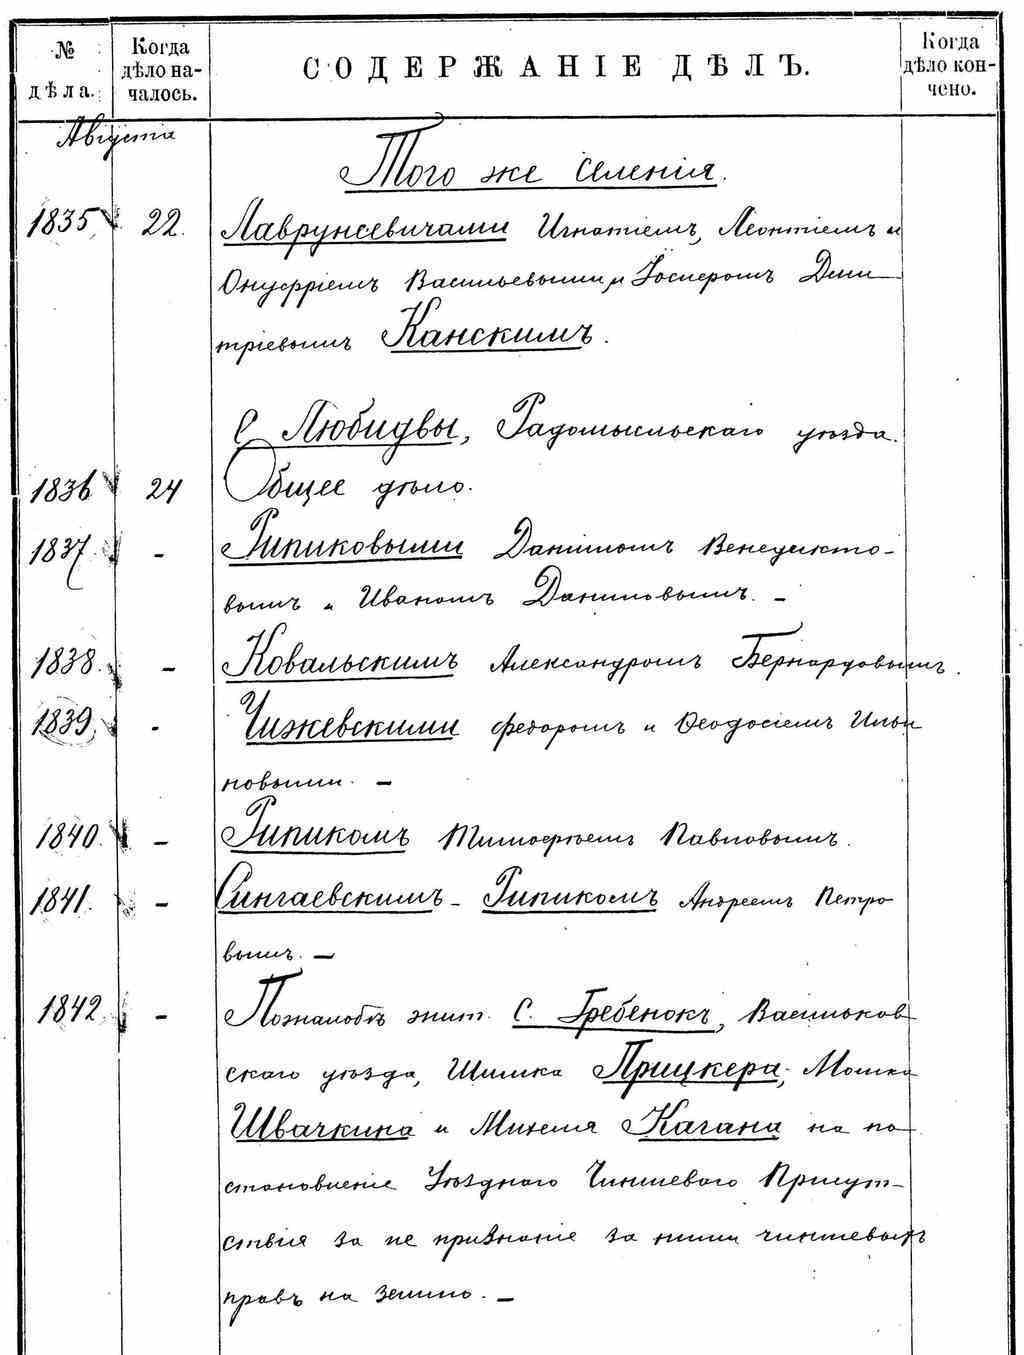 № дѣла.
Когда дѣло на-
чалось.
СОДЕРЖАНІЕ ДѢЛЪ.
Когда дѣло кон-
чено.
Августа
Того же селенія.
1835 22. Лаврунсевичами Игнатіемъ, Леонтіемъ и
Онуфріемъ Васильевыми и Іосифомъ Дми-
тріевымъ Канскимъ.
с Любидвы, Радомысльскаго уѣзда.
1836 24 Общее дѣло.
1837. - Рипиковыми Даніиломъ Венедикто-
вымъ и Иваномъ Даниловымъ. -
1838. - Ковальскимъ Александромъ Бернардовымъ.
1839. - Чижевскими Федоромъ и Ѳеодосіемъ Ильи
новыми. -
1840. - Рипикомъ Тимофѣемъ Павловымъ.
1841. - Сингаевскимъ - Рипикомъ Андреемъ Петро
вымъ. -
1842 - По жалобѣ жит. с. Гребенокъ, Васильков
скаго уѣзда, Шимка Прицкера, Мошка
Швачкина и Михеля Кагана на по
становленіе Уѣзднаго Чиншеваго Присут-
ствія за не признаніе за ними чиншевыхъ
правъ на землю. -